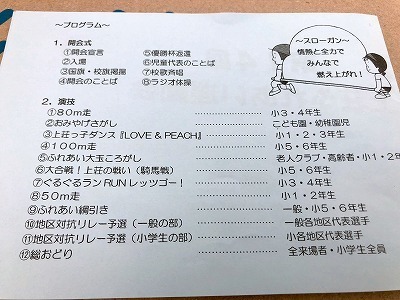 ～プログラム～
1．開会式
①開会宣言 ⑤優勝杯返還
②入場 ⑥児童代表のことば
③国旗・校旗掲揚 ⑦校歌斉唱
④開会のことば ⑧ラジオ体操
～スローガン～
情熱と全力で
みんなで
燃え上がれ！
2．演技
①８０ｍ走 ‥‥‥‥‥‥‥‥ 小３・４年生
②おみやげさがし ‥‥‥‥‥‥‥‥ こども園・幼稚園児
③上荘っ子ダンス『LOVE & PEACH』 ‥‥‥‥‥‥‥‥ 小１・２・３年生
④１００ｍ走 ‥‥‥‥‥‥‥‥ 小５・６年生
⑤ふれあい大玉ころがし ‥‥‥‥‥‥‥‥ 老人クラブ・高齢者・小１・２年
⑥大合戦！上荘の戦い（騎馬戦） ‥‥‥‥‥‥‥‥ 小５・６年生
⑦ぐるぐるラン RUN レッツゴー！ ‥‥‥‥‥‥‥‥ 小３・４年生
⑧５０ｍ走 ‥‥‥‥‥‥‥‥ 小１・２年生
⑨ふれあい綱引き ‥‥‥‥‥‥‥‥ 一般・小５・６年生
⑩地区対抗リレー予選（一般の部） ‥‥‥‥‥‥‥‥ 一般各地区代表選手
⑪地区対抗リレー予選（小学生の部） ‥‥‥‥‥‥‥‥ 小各地区代表選手
⑫総おどり ‥‥‥‥‥‥‥‥ 全来場者・小学生全員